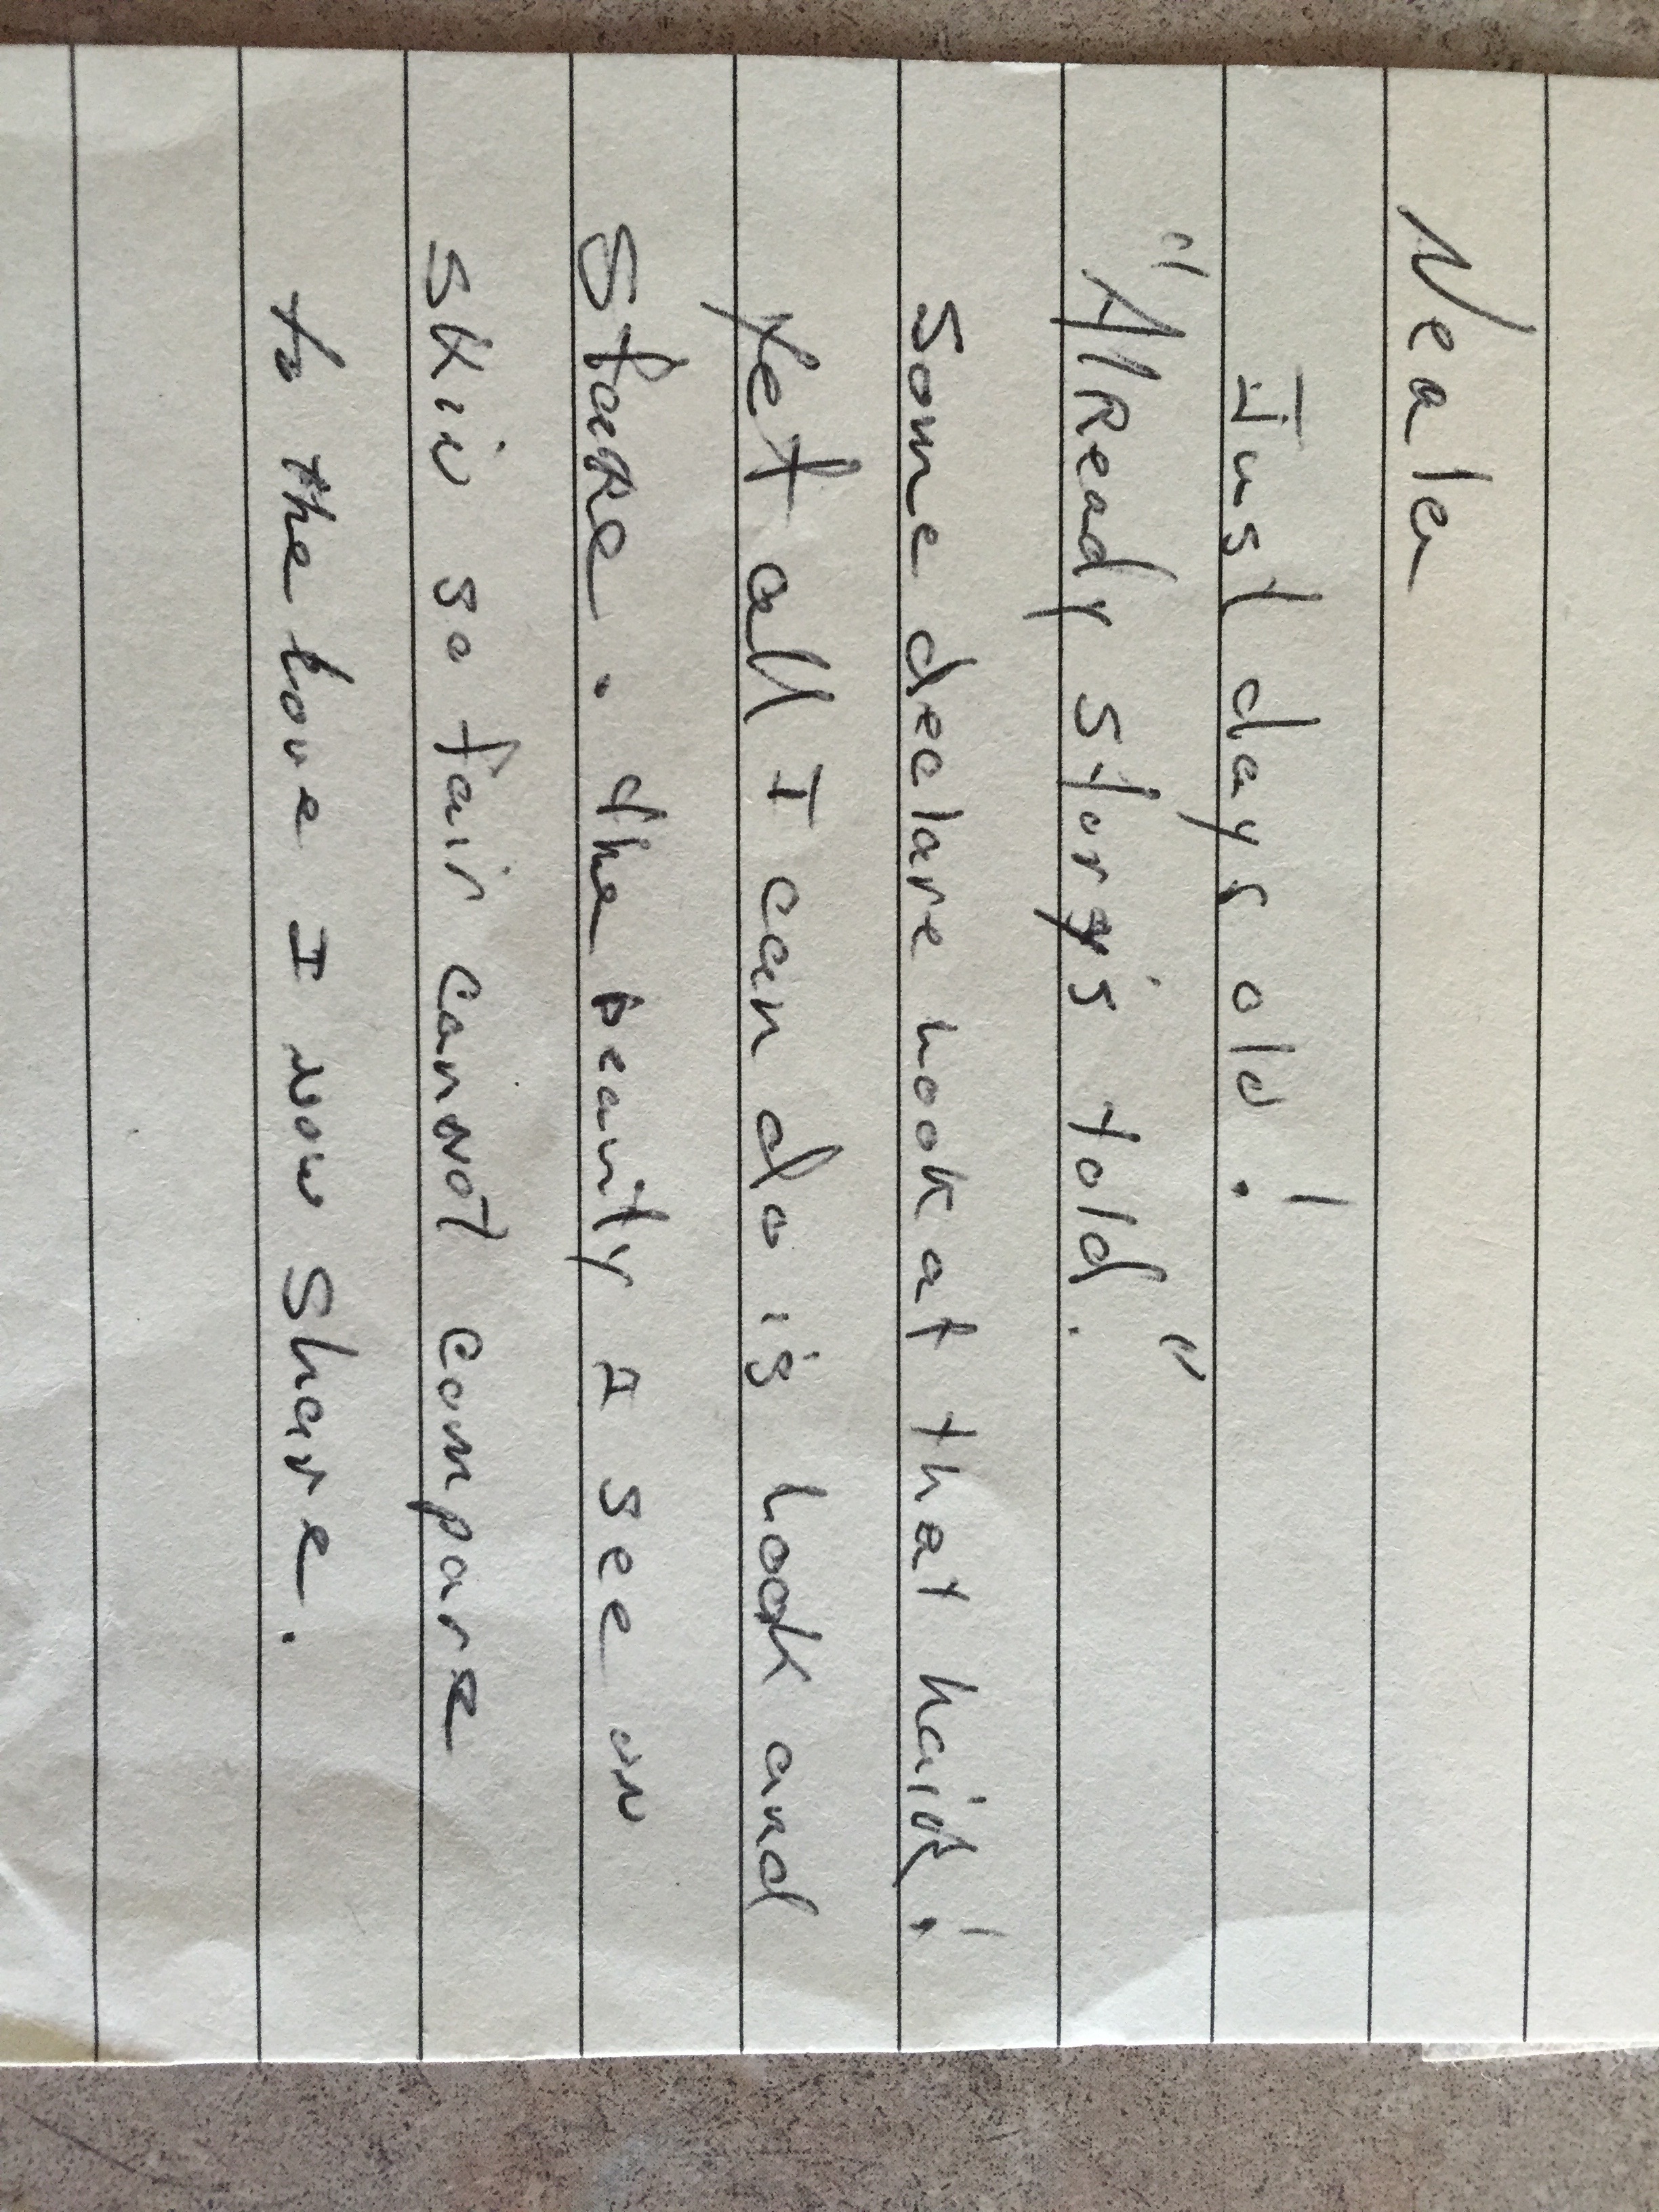 Neale
Just days old!
"AllReady story's told."
Some declare look at that hair!
Yet all I can do is look and
Stare. the beauty I see on
Skin so fair cannot compare
to the love I now Share.